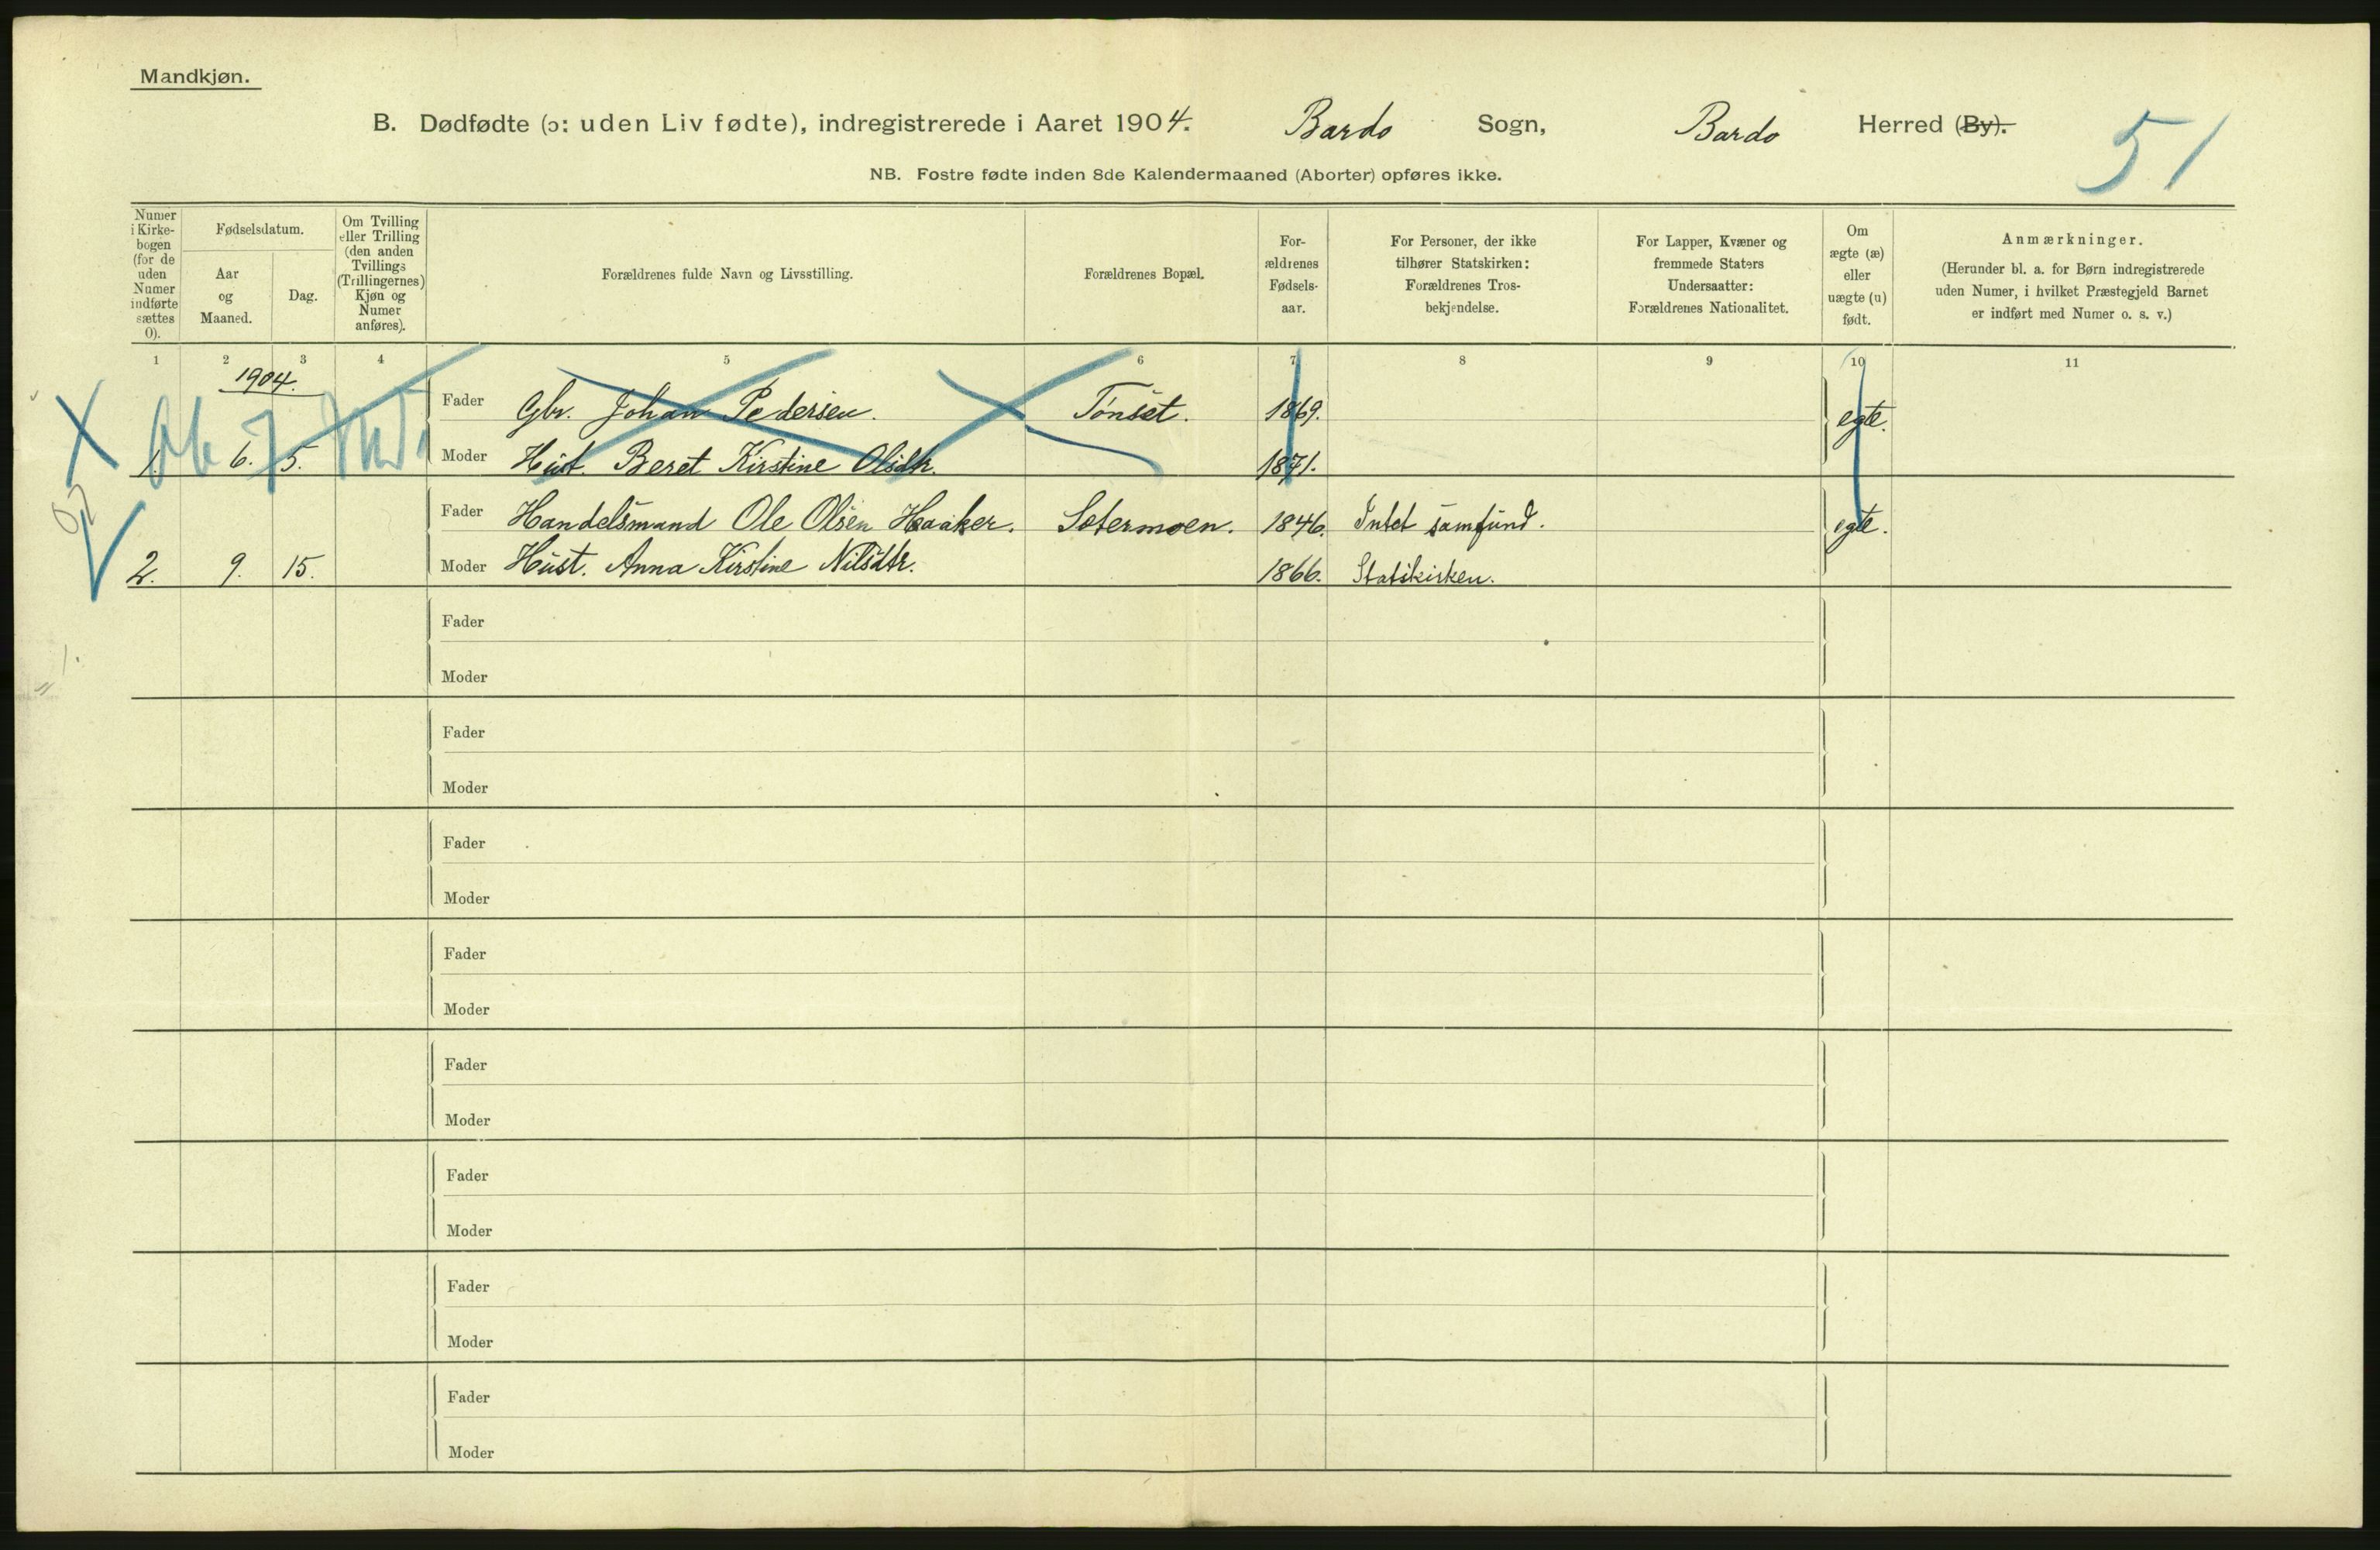 Mandkjøn.
B. Dødfødte (ɔ: uden Liv fødte), indregistrerede i Aaret 1904. Bardo Sogn, Bardo Herred (By).
51
NB. Fostre fødte inden 8de Kalendermaaned (Aborter) opføres ikke.
Numer
i Kirke-
bogen
(for de
uden
Numer
indførte
sættes
0).
Fødselsdatum.
Aar
og
Maaned.
Dag.
Om Tvilling
eller Trilling
(den anden
Tvillings
(Trillingernes)
Kjøn og
Numer
anføres).
Forældrenes fulde Navn og Livsstilling.
Forældrenes Bopæl.
For-
ældrenes
Fødsels-
aar.
For Personer, der ikke
tilhører Statskirken:
Forældrenes Tros-
bekjendelse.
For Lapper, Kvæner og
fremmede Staters
Undersaatter:
Forældrenes Nationalitet.
Om
ægte (æ)
eller
uægte (u)
født.
Anmærkninger.
(Herunder bl. a. for Børn indregistrerede
uden Numer, i hvilket Præstegjeld Barnet
er indført med Numer o. s. v.)
1 2 3 4 5 6 7 8 9 10 11
1904.
Fader Gbr. Johan Pedersen. Tønset. 1869. egte.
1. 6. 5. Moder Hust. Beret Kirstine Olsdtr. 1871.
Fader Handelsmand Ole Olsen Haaker. Setermoen. 1846. Intet samfund. egte.
2. 9. 15. Moder Hust. Anna Kirstine Nilsdtr. 1866. Statskirken.
Fader
Moder
Fader
Moder
Fader
Moder
Fader
Moder
Fader
Moder
Fader
Moder
Fader
Moder
Fader
Moder